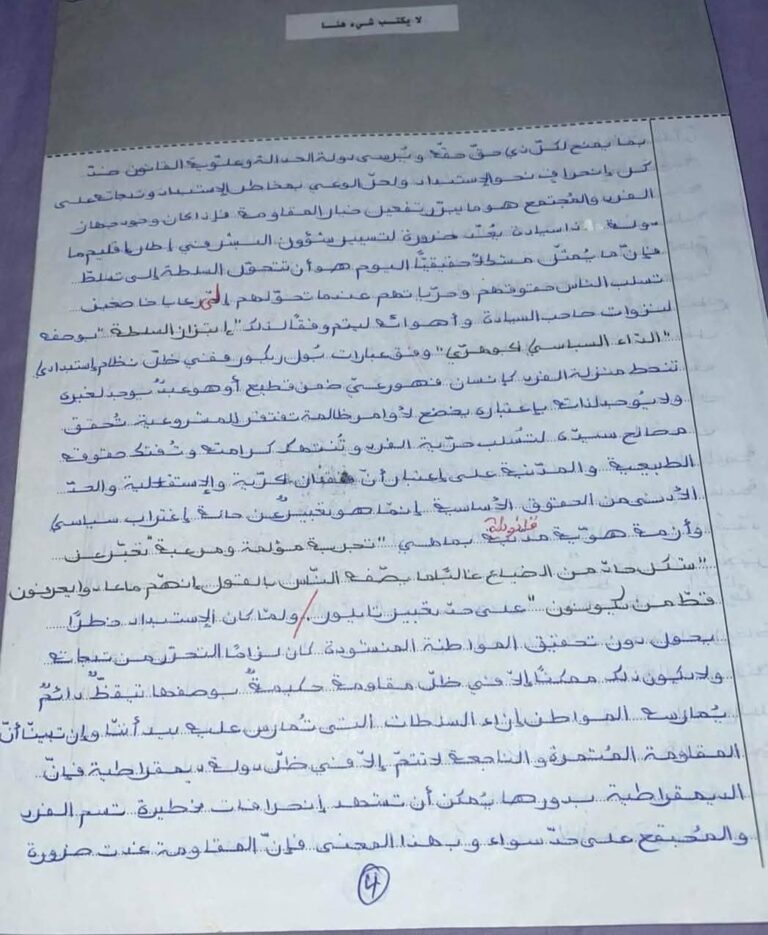 لا يكتب شيء هنا
بما يمنح لكلّ ذي حقّ حقّه ويُرسى دولة العدالة وعلويّة القانون ضدّ
كل إنحراف نحو الإستبداد ولعلّ الوعي بمخاطر الإستبداد وتبعاته على
الفرد والمُجتمع هو ما يبرّر تفعيل خيار المقاومة فإذا كان وجود جهاز
دولة ذا سيادة يُعدّ ضرورة لتسيير شؤون البشر في إطار إقليم ما
فإنّ ما يُمثّل مشكلا حقيقيًّا اليوم هو أن تتحوّل السلطة إلى تسلّط
تسلب الناس حقوقهم وحرّياتهم عندما تحوّلهم إلى رعايا خاضعين
لنزوات صاحب السيادة وأهوائه ليتم وفقًا لذلك "إبتزاز السلطة" بوصفه
"الدّاء السياسي الجوهريّ" وفق عبارات بُول ريكور ففي ظلّ نظام إستبدادي
تنحط منزلة الفرد كإنسان فهو رعيّ ضمن قطيع أو هو عبدٌ يوجد لغيره
ولا يُوجد لذاته بإعتباره يخضع لأوامر ظالمة تفتقر للمشروعية تُحقق
مصالح سيّده لتُسلب حرّية الفرد وتُنتهك كرامته وتُفتكّ حقوقه
الطبيعية والمدّنية على إعتبار أنّ فقدان الحرّية والإستقلالية والحدّ
الأدنى من الحقوق الأساسية إنّما هو تعبيرٌ عن حالة إغتراب سياسي
وأزمة هويّة مدنيّة بما هي "تجربة مؤلمة ومرعبة تُعبّر عن
"شكل حادّ من الضياع غالبًا ما يصّفه النّاس بالقول إنهّم ما عادوا يعرفون
قطّ من يكونون" على حدّ تعبير تايلور. ولمّا كان الإستبداد خطرًا
يحول دون تحقيق المواطنة المنشودة كان لزامًا التحرّر من تبعاته
ولا يكون ذلك ممكنًا إلّا في ظلّ مقاومة حكيمةٌ بوصفها تيقّظٌ دائمٌ
يُمارسه المواطن إزاء السلطات التي تُمارس عليه بيد أننّا وإن تبينّا أنّ
المقاومة المُثمرة والناجعة لا تتمّ إلّا في ظلّ دولة ديمقراطية فإنّ
الديمقراطية بدورها يُمكن أن تشهد إنحرافات خطيرة تسم الفرد
والمُجتمع على حدّ سواء وبهذا المعنى فإنّ المقاومة غدت ضرورة
4